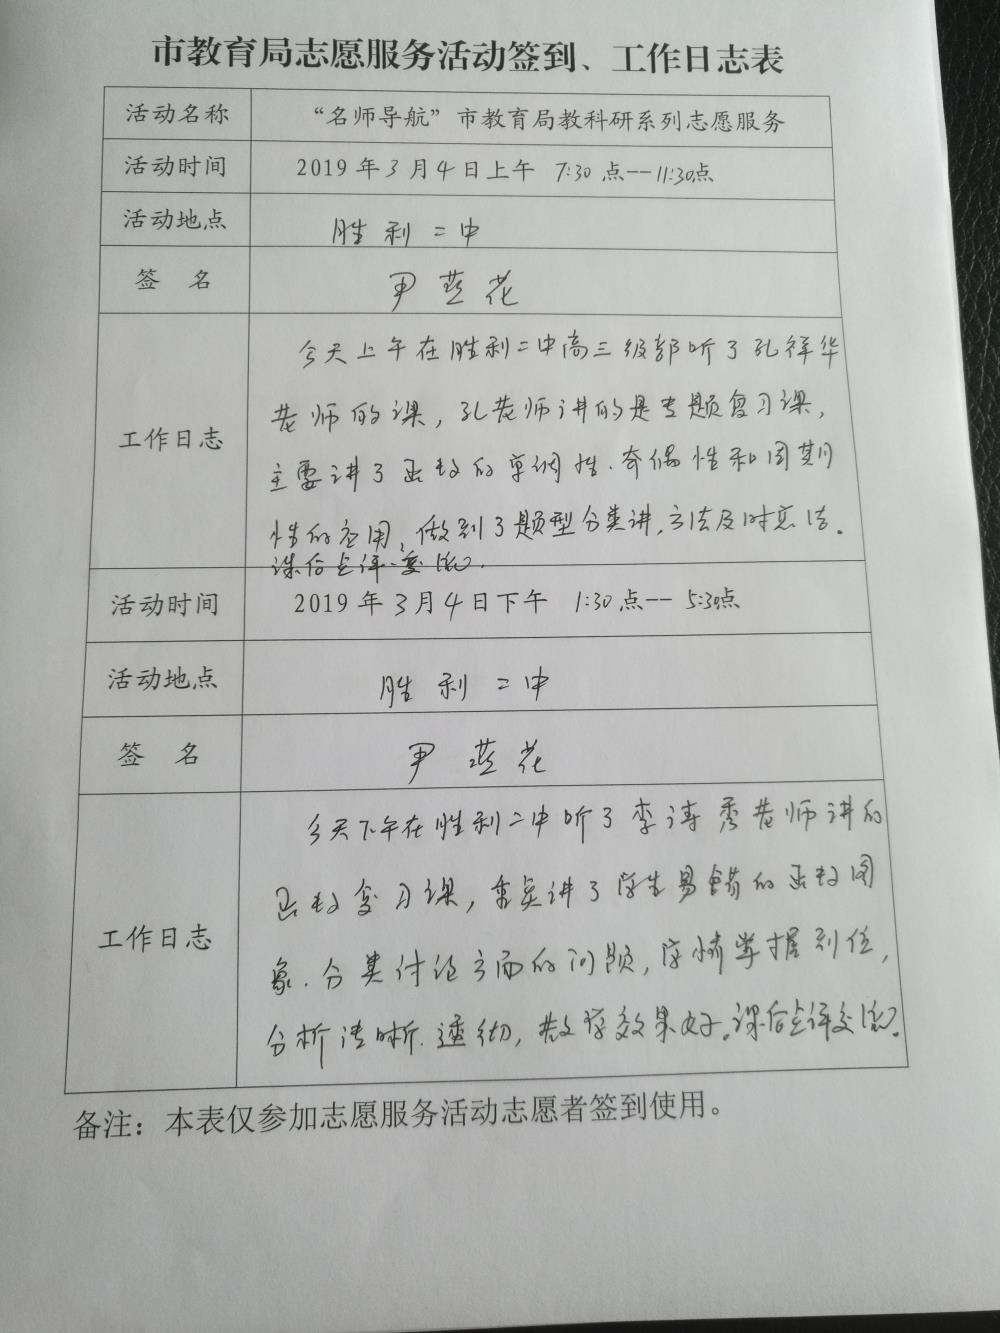 市教育局志愿服务活动签到、工作日志表
活动名称 “名师导航”市教育局教科研系列志愿服务
活动时间 2019年3月4日上午 7:30点--11:30点
活动地点 胜利二中
签 名 尹燕花
工作日志
今天上午在胜利二中高三级部听了孔祥华
老师的课，孔老师讲的是专题复习课，
主要讲了函数的单调性、奇偶性和周期
性的应用，做到了题型分类讲，方法及时总结。
课后点评交流。
活动时间 2019年3月4日下午 1:30点--5:30点
活动地点 胜利二中
签 名 尹燕花
工作日志
今天下午在胜利二中听了李涛秀老师讲的
函数复习课，重点讲了学生易错的函数图
象、分类讨论方面的问题，学情掌握到位，
分析清晰、透彻，教学效果好。课后点评交流。
备注：本表仅参加志愿服务活动志愿者签到使用。